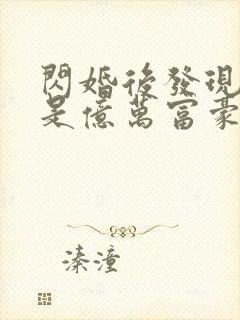 閃婚後發現
是億萬富豪
溱潼